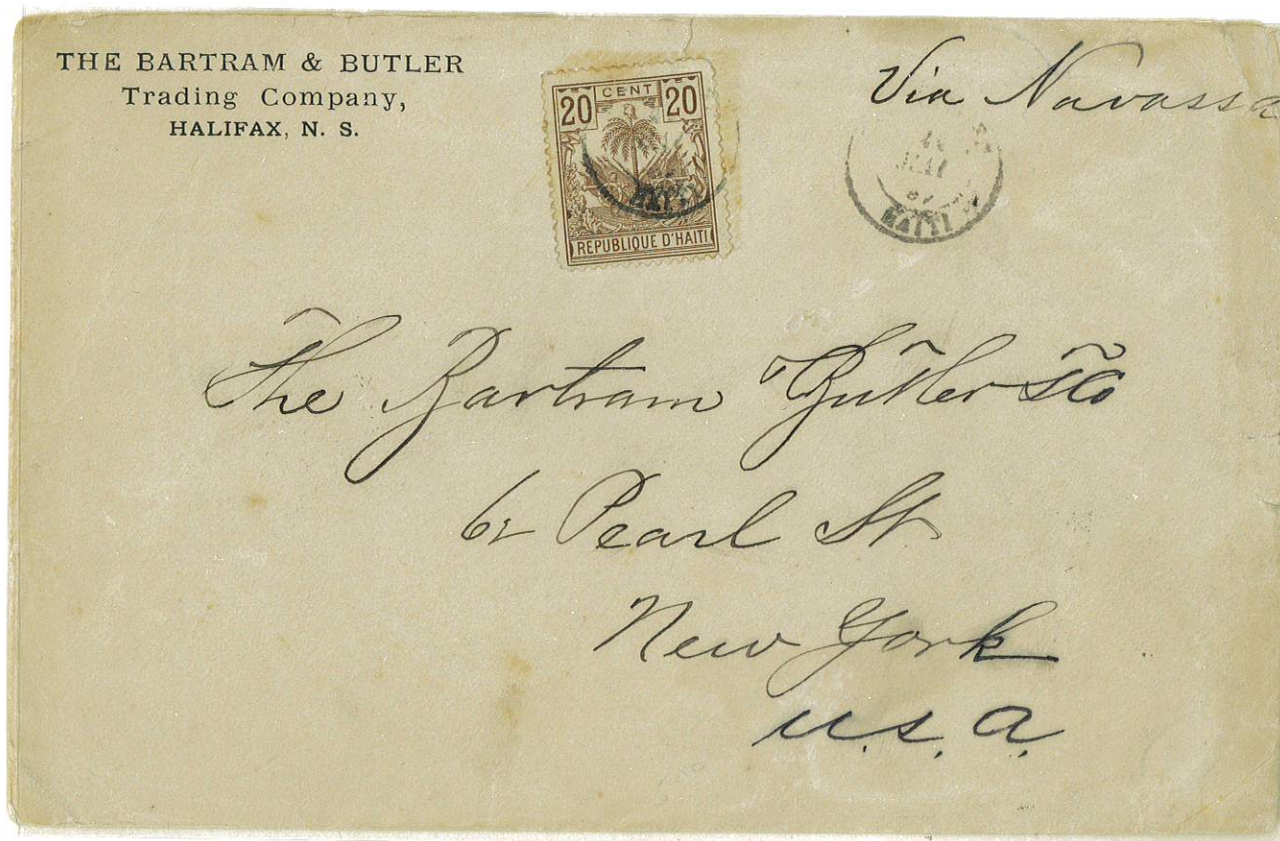 THE BARTRAM & BUTLER
Trading Company,
HALIFAX, N. S.
20 CENT 20
REPUBLIQUE D'HAITI
HAITI
Via Navassa
MAI
HAITI
The Bartram & Butler Co
62 Pearl St
New York
U.S.A.